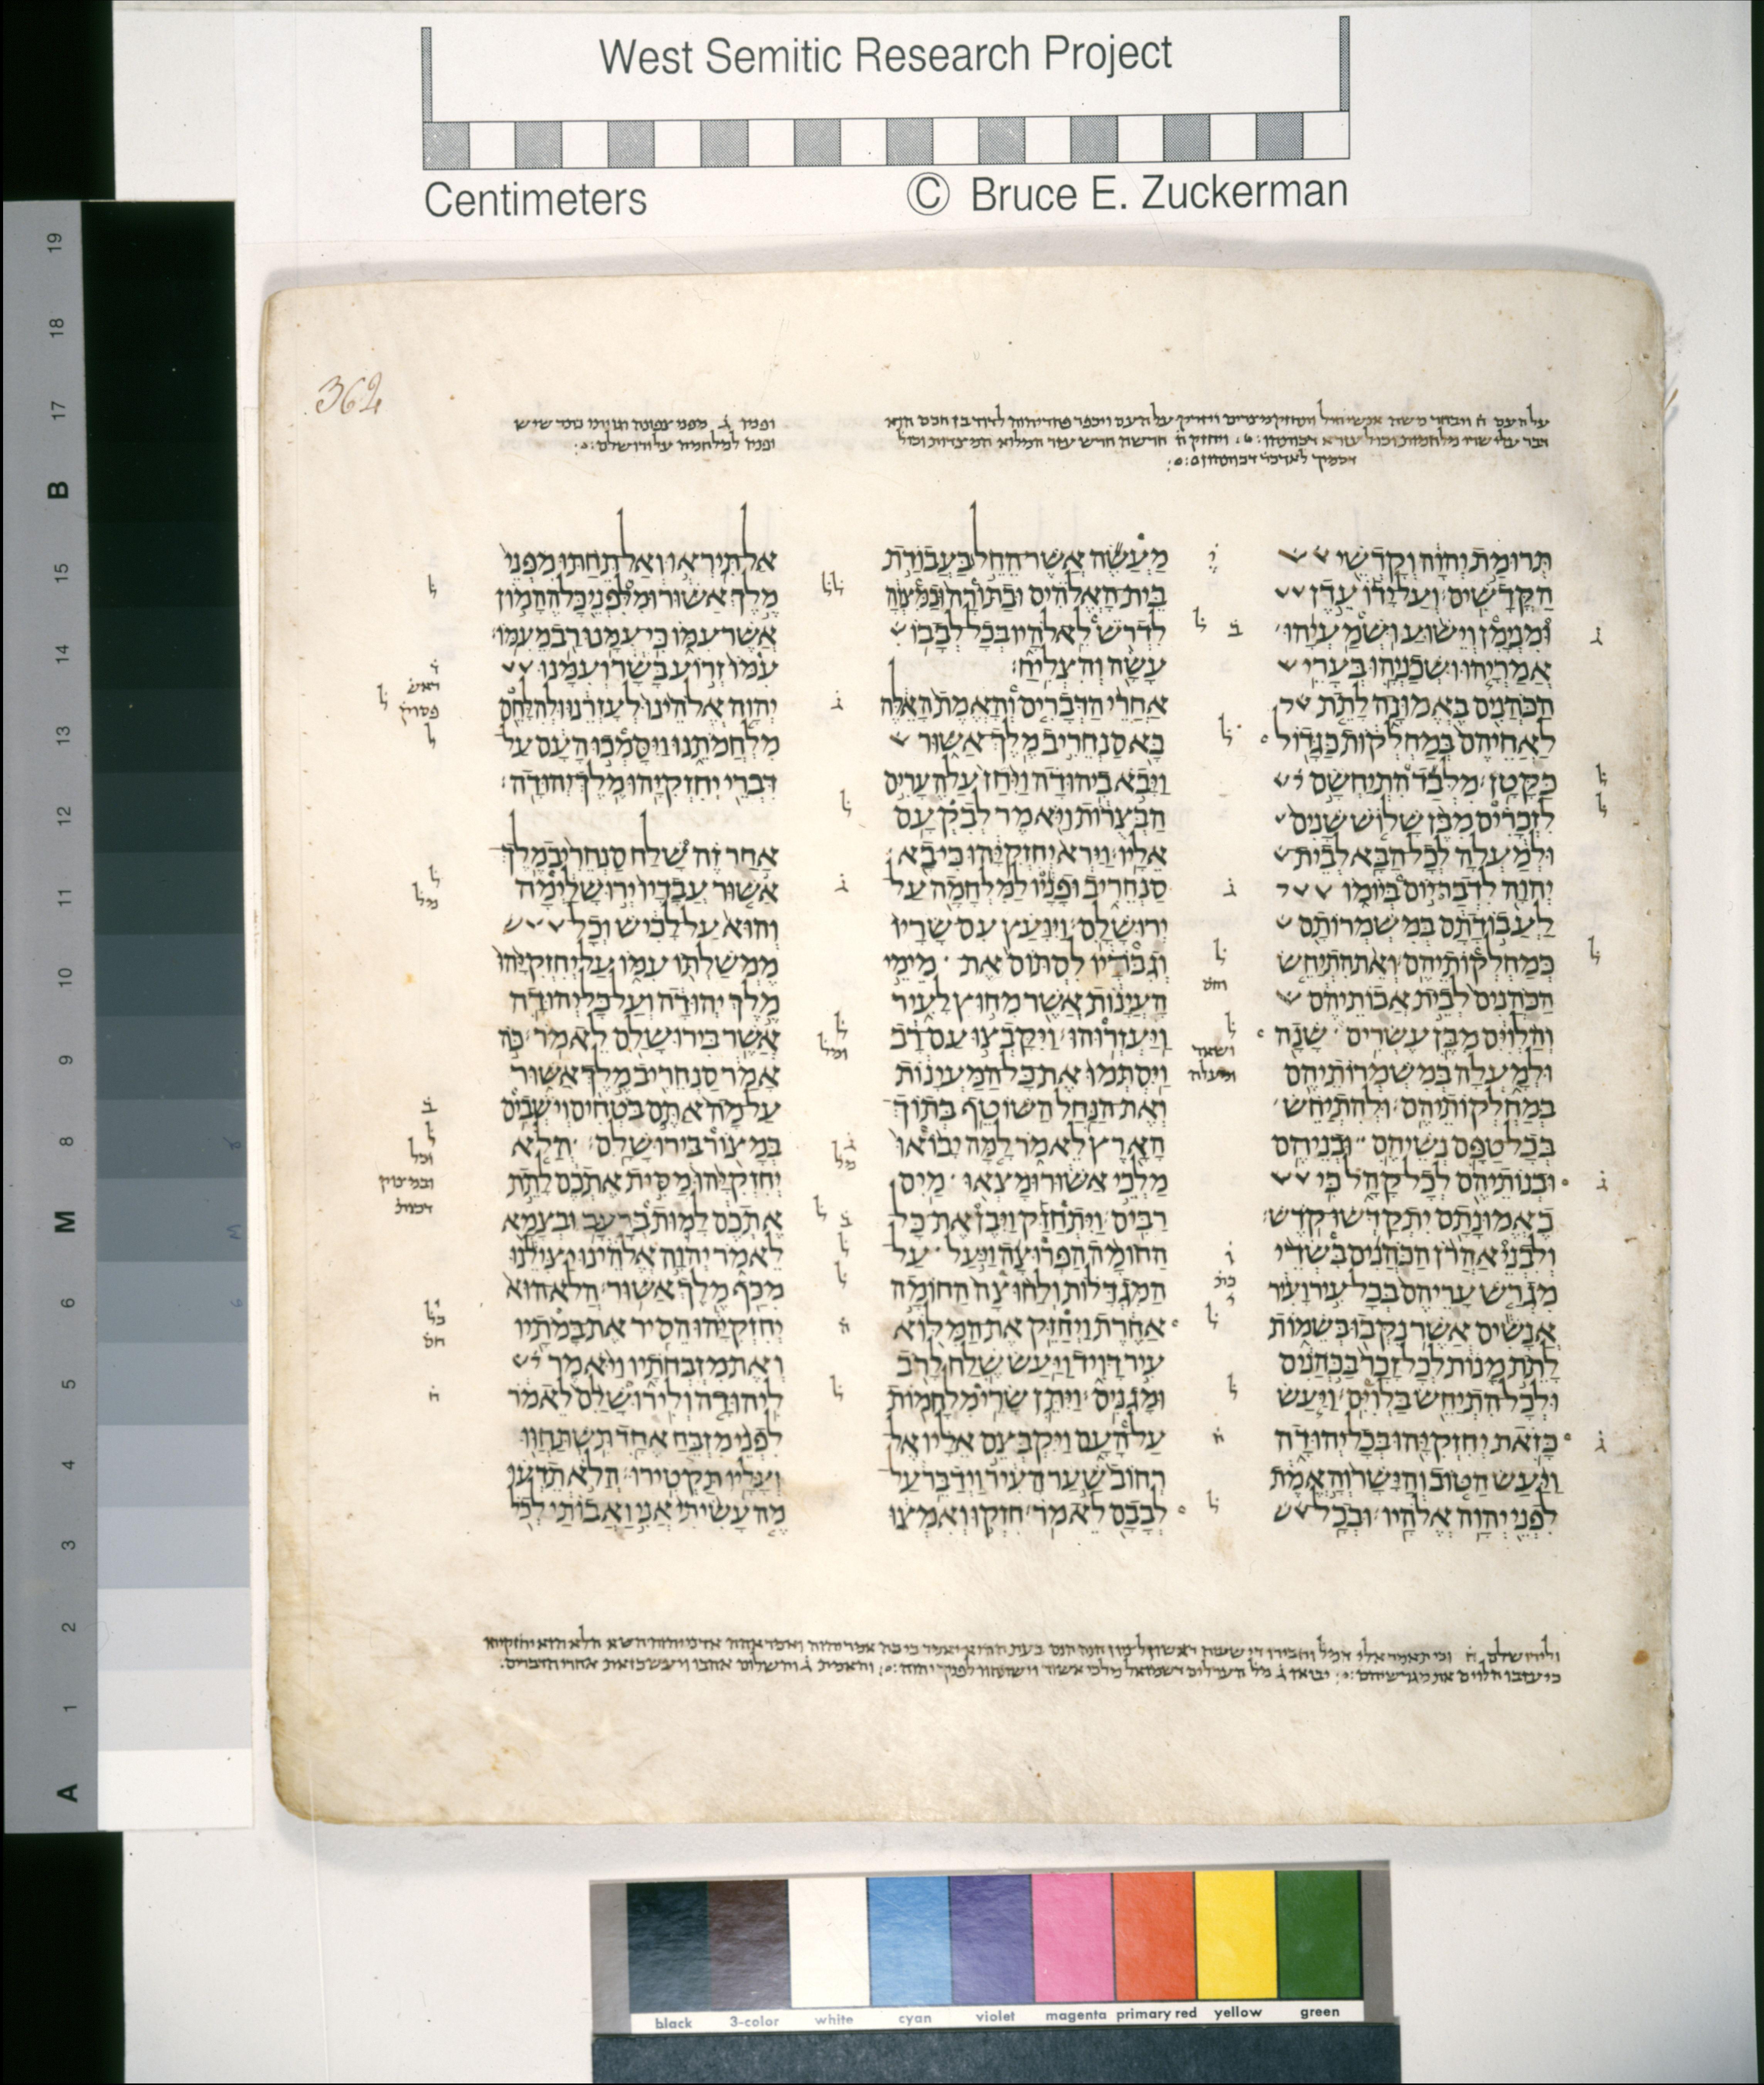 West Semitic Research Project
Centimeters
© Bruce E. Zuckerman
19
18
17
B
15
14
13
12
11
10
9
8
M
6
5
4
3
2
1
A
362
תרומת יהוה וקדשי
הקדשים ועל ידו עדן
ומנימן וישוע ושמעיהו
אמריהו ושכניהו בערי
הכהנים באמונה לתת
לאחיהם במחלקות כגדול
כקטן מלבד התיחשם
לזכרים מבן שלוש שנים
ולמעלה לכל הבא לבית
יהוה לדבר יום ביומו
לעבודתם במשמרותם
כמחלקותיהם ואת התיחש
הכהנים לבית אבותיהם
והלוים מבן עשרים שנה
ולמעלה במשמרותיהם
במחלקותיהם ולהתיחש
בכל טפם נשיהם ובניהם
ובנותיהם לכל קהל כי
באמונתם יתקדשו קדש
ולבני אהרן הכהנים בשדי
מגרש עריהם בכל עיר ועיר
אנשים אשר נקבו בשמות
לתת מנות לכל זכר בכהנים
ולכל התיחש בלוים ויעש
כזאת יחזקיהו בכל יהודה
ויעש הטוב והישר והאמת
לפני יהוה אלהיו ובכל
מעשה אשר החל בעבודת
בית האלהים ובתורה ובמצוה
לדרש לאלהיו בכל לבבו
עשה והצליח
אחרי הדברים והאמת האלה
בא סנחריב מלך אשור
ויבא ביהודה ויחן על הערים
הבצרות ויאמר לבקעם
אליו וירא יחזקיהו כי בא
סנחריב ופניו למלחמה על
ירושלם ויועץ עם שריו
וגבריו לסתום את מימי
העינות אשר מחוץ לעיר
ויעזרוהו ויקבצו עם רב
ויסתמו את כל המעינות
ואת הנחל השוטף בתוך
הארץ לאמר למה יבואו
מלכי אשור ומצאו מים
רבים ויתחזק ויבן את כל
החומה הפרוצה ויעל על
המגדלות ולחוצה החומה
אחרת ויחזק את המלוא
עיר דויד ויעש שלח לרב
ומגנים ויתן שרי מלחמות
על העם ויקבצם אליו אל
רחוב שער העיר וידבר על
לבבם לאמר חזקו ואמצו
אל תיראו ואל תחתו מפני
מלך אשור ומלפני כל ההמון
אשר עמו כי עמנו רב מעמו
עמו זרוע בשר ועמנו
יהוה אלהינו לעזרנו ולהלחם
מלחמתנו ויסמכו העם על
דברי יחזקיהו מלך יהודה
אחר זה שלח סנחריב מלך
אשור עבדיו ירושלימה
והוא על לכיש וכל
ממשלתו עמו על יחזקיהו
מלך יהודה ועל כל יהודה
אשר בירושלם לאמר כה
אמר סנחריב מלך אשור
על מה אתם בטחים וישבים
במצור בירושלם הלא
יחזקיהו מסית אתכם לתת
אתכם למות ברעב ובצמא
לאמר יהוה אלהינו יצילנו
מכף מלך אשור הלא הוא
יחזקיהו הסיר את במתיו
ואת מזבחתיו ויאמר
ליהודה ולירושלם לאמר
לפני מזבח אחד תשתחוו
ועליו תקטירו הלא תדעו
מה עשיתי אני ואבותי לכל
black
3-color
white
cyan
violet
magenta
primary red
yellow
green